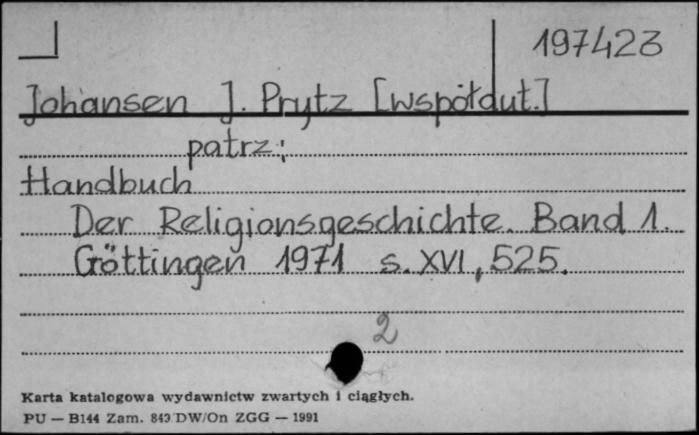 197423
Johansen J. Prytz [współaut.]
patrz:
Handbuch
Der Religionsgeschichte. Band 1.
Göttingen 1971 s. XVI, 525.
2
Karta katalogowa wydawnictw zwartych i ciągłych.
PU — B144 Zam. 843 DW/On ZGG — 1991